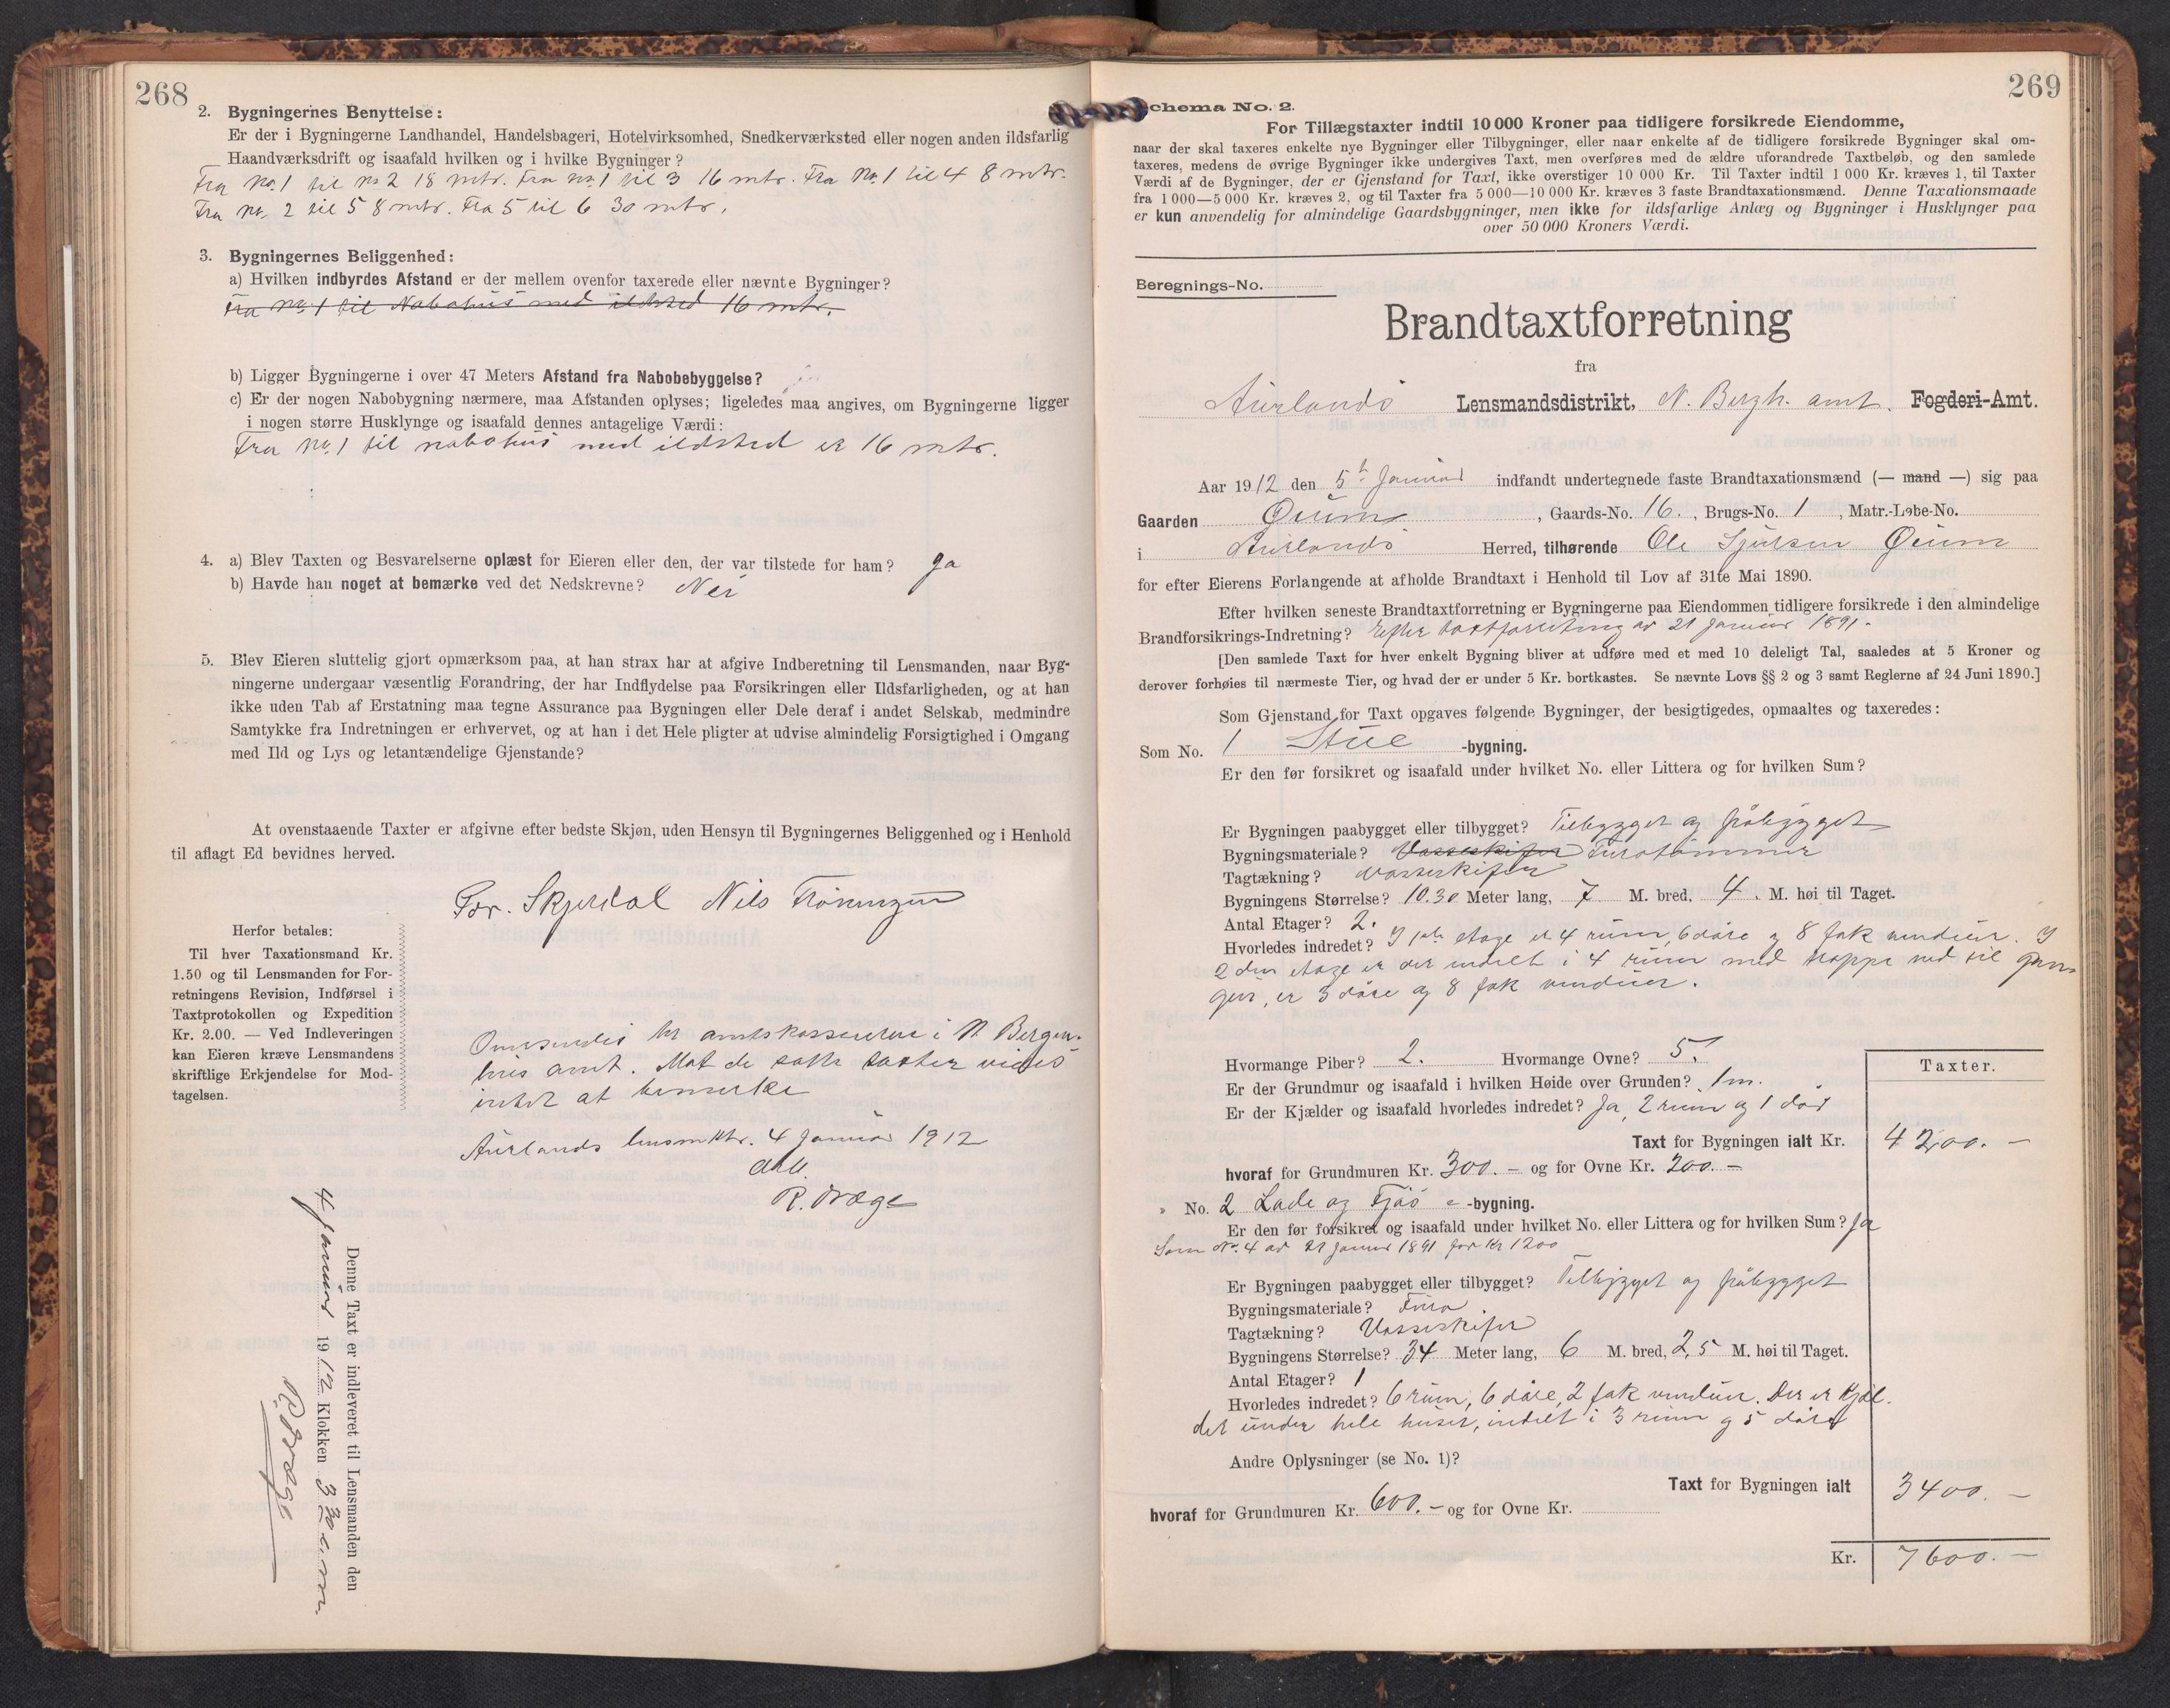 268
2. Bygningernes Benyttelse:
Er der i Bygningerne Landhandel, Handelsbageri, Hotelvirksomhed, Snedkerværksted eller nogen anden ildsfarlig
Haandværksdrift og isaafald hvilken og i hvilke Bygninger?
Fra No. 1 til No 2 18 mtr. Fra No. 1 til 3 16 mtr. Fra No. 1 til 4 8 mtr.
Fra No. 2 til 5 8 mtr. Fra 5 til 6 30 mtr.
3. Bygningernes Beliggenhed:
a) Hvilken indbyrdes Afstand er der mellem ovenfor taxerede eller nævnte Bygninger?
Fra No. 1 til Nabohus med ildsted 16 mtr.
b) Ligger Bygningerne i over 47 Meters Afstand fra Nabobebyggelse?
c) Er der nogen Nabobygning nærmere, maa Afstanden oplyses; ligeledes maa angives, om Bygningerne ligger
i nogen større Husklynge og isaafald dennes antagelige Værdi:
Fra No. 1 til nabohus med ildsted er 16 mtr.
4. a) Blev Taxten og Besvarelserne oplæst for Eieren eller den, der var tilstede for ham? Ja
b) Havde han noget at bemærke ved det Nedskrevne? Nei
5. Blev Eieren sluttelig gjort opmærksom paa, at han strax har at afgive Indberetning til Lensmanden, naar Byg-
ningerne undergaar væsentlig Forandring, der har Indflydelse paa Forsikringen eller Ildsfarligheden, og at han
ikke uden Tab af Erstatning maa tegne Assurance paa Bygningen eller Dele deraf i andet Selskab, medmindre
Samtykke fra Indretningen er erhvervet, og at han i det Hele pligter at udvise almindelig Forsigtighed i Omgang
med Ild og Lys og letantændelige Gjenstande?
At ovenstaaende Taxter er afgivne efter bedste Skjøn, uden Hensyn til Bygningernes Beliggenhed og i Henhold
til aflagt Ed bevidnes herved.
Skjerdal Nils
Herfor betales:
Til hver Taxationsmand Kr.
1.50 og til Lensmanden for For-
retningens Revision, Indførsel i
Taxtprotokollen og Expedition
Kr. 2.00. — Ved Indleveringen
kan Eieren kræve Lensmandens
skriftlige Erkjendelse for Mod-
tagelsen.
Oversendes hr amtskassereren i N Bergen-
hus amt. Mot de satte taxter vides
intet at bemerke
Aurlands lensmktr. 4 Januar 1912
R. Dræge
Denne Taxt er indleveret til Lensmanden den
4 Januar 1912 Klokken 3 30 e.m.
R. Dræge
269
Schema No. 2.
For Tillægstaxter indtil 10 000 Kroner paa tidligere forsikrede Eiendomme,
naar der skal taxeres enkelte nye Bygninger eller Tilbygninger, eller naar enkelte af de tidligere forsikrede Bygninger skal om-
taxeres, medens de øvrige Bygninger ikke undergives Taxt, men overføres med de ældre uforandrede Taxtbeløb, og den samlede
Værdi af de Bygninger, der er Gjenstand for Taxt, ikke overstiger 10 000 Kr. Til Taxter indtil 1 000 Kr. kræves 1, til Taxter
fra 1 000—5 000 Kr. kræves 2, og til Taxter fra 5 000—10 000 Kr. kræves 3 faste Brandtaxationsmænd. Denne Taxationsmaade
er kun anvendelig for almindelige Gaardsbygninger, men ikke for ildsfarlige Anlæg og Bygninger i Husklynger paa
over 50 000 Kroners Værdi.
Beregnings-No.
Brandtaxtforretning
fra
Aurlands Lensmandsdistrikt, N. Bergh. amt. Fogderi-Amt.
Aar 1912 den 5te Januar indfandt undertegnede faste Brandtaxationsmænd (— mand —) sig paa
Gaarden Øium, Gaards-No. 16., Brugs-No. 1, Matr.-Løbe-No.
i Aurlands Herred, tilhørende Ole Sjursen Øium
for efter Eierens Forlangende at afholde Brandtaxt i Henhold til Lov af 31te Mai 1890.
Efter hvilken seneste Brandtaxtforretning er Bygningerne paa Eiendommen tidligere forsikrede i den almindelige
Brandforsikrings-Indretning? Efter taxtforretning av 21 Januar 1891.
[Den samlede Taxt for hver enkelt Bygning bliver at udføre med et med 10 deleligt Tal, saaledes at 5 Kroner og
derover forhøies til nærmeste Tier, og hvad der er under 5 Kr. bortkastes. Se nævnte Lovs §§ 2 og 3 samt Reglerne af 24 Juni 1890.]
Som Gjenstand for Taxt opgaves følgende Bygninger, der besigtigedes, opmaaltes og taxeredes:
Som No. 1 Stue -bygning.
Er den før forsikret og isaafald under hvilket No. eller Littera og for hvilken Sum?
Er Bygningen paabygget eller tilbygget? Tilbygget og påbygget
Bygningsmateriale? Vasseskifer Furutømmer
Tagtækning? Vasseskifer
Bygningens Størrelse? 10.30 Meter lang, 7 M. bred, 4. M. høi til Taget.
Antal Etager? 2.
Hvorledes indredet? I 1ste etage er 4 rum, 6 døre og 8 fak vinduer. I
2den etage er der indelt i 4 rum med trappe ned til gan-
gen, er 3 døre og 8 fak vinduer.
Hvormange Piber? 2. Hvormange Ovne? 5.
Er der Grundmur og isaafald i hvilken Høide over Grunden? 1 m.
Er der Kjælder og isaafald hvorledes indredet? Ja, 2 rum og 1 dør
Taxter.
Taxt for Bygningen ialt Kr. 4200. —
hvoraf for Grundmuren Kr. 300. — og for Ovne Kr. 200. —
" No. 2 Lade og Fjøs -bygning.
Er den før forsikret og isaafald under hvilket No. eller Littera og for hvilken Sum? Ja
Som No. 4 av 21 Januar 1891 for Kr 1200
Er Bygningen paabygget eller tilbygget? Tilbygget og påbygget
Bygningsmateriale? Furu
Tagtækning? Vasseskifer
Bygningens Størrelse? 34 Meter lang, 6 M. bred, 2,5 M. høi til Taget.
Antal Etager? 1
Hvorledes indredet? 6 rum, 6 døre, 2 fak vinduer. Der er kjæl-
der under hele huset, indelt i 3 rum og 5 døre
Andre Oplysninger (se No. 1)?
Taxt for Bygningen ialt 3400. —
hvoraf for Grundmuren Kr. 600. — og for Ovne Kr.
Kr. 7600. —